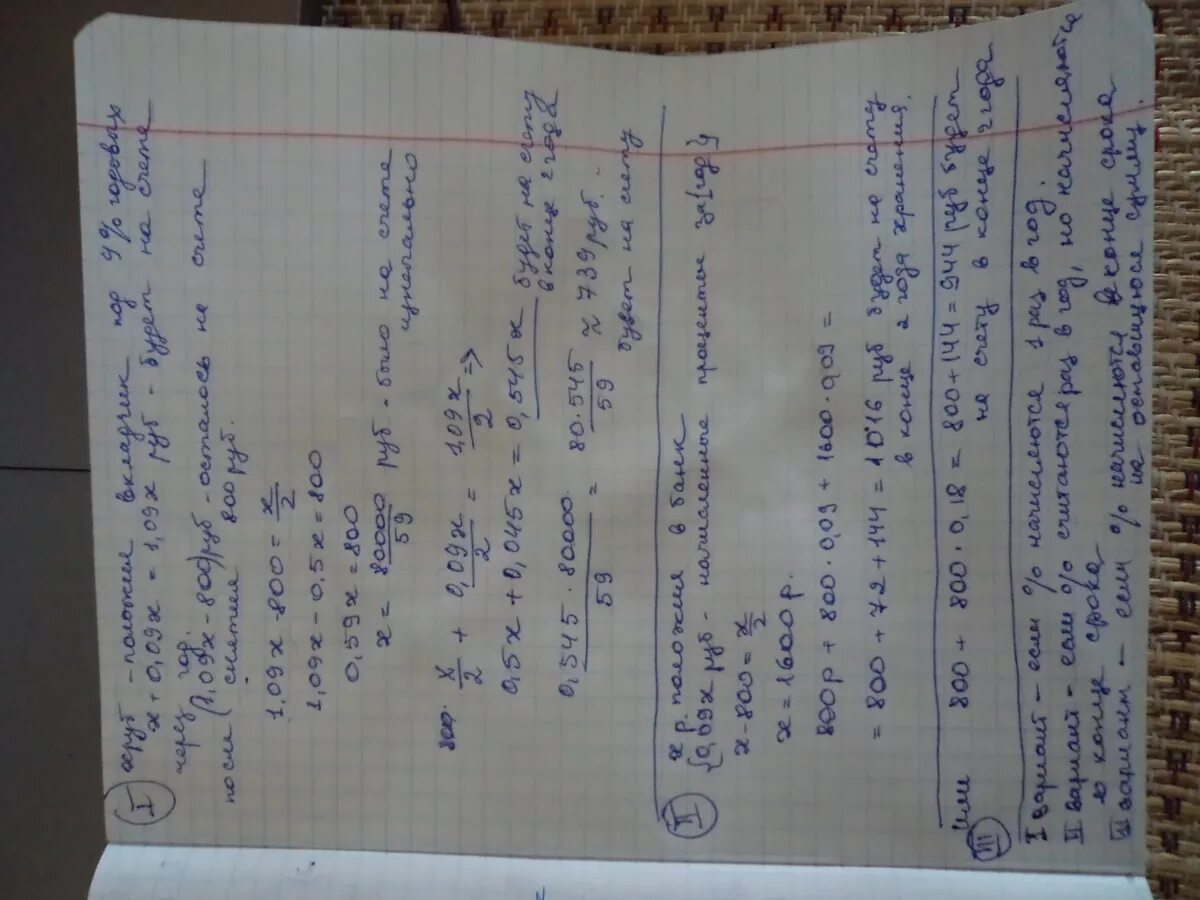 I х руб - положил вкладчик под 9% годовых
х + 0,09х = 1,09х руб - будет на счете
через год.
после (1,09х - 800) руб - осталось на счете
снятия 800 руб.
1,09х - 800 = х/2
1,09х - 0,5х = 800
0,59х = 800
х = 80000/59 руб - было на счете
изначально
х/2 + 0,09х/2 = 1,09х/2 =>
0,5х + 0,045х = 0,545х будет на счету
в конце 2 года
0,545 · 80000/59 = 80 · 545/59 ≈ 739 руб. -
будет на счету
II х р. положил в банк
{0,09х руб - начисленные проценты за 1 год}
х - 800 = х/2
х = 1600 р.
800р + 800 · 0,09 + 1600 · 0,09 =
= 800 + 72 + 144 = 1016 руб будет на счету
в конце 2 года хранения.
или 800 + 800 · 0,18 = 800 + 144 = 944 руб будет
III на счету в конце 2 года
I вариант - если % начисляются 1 раз в год.
II вариант - если % считаются раз в год, но начисляются
в конце срока
III вариант - если % начисляются в конце срока
на оставшуюся сумму.